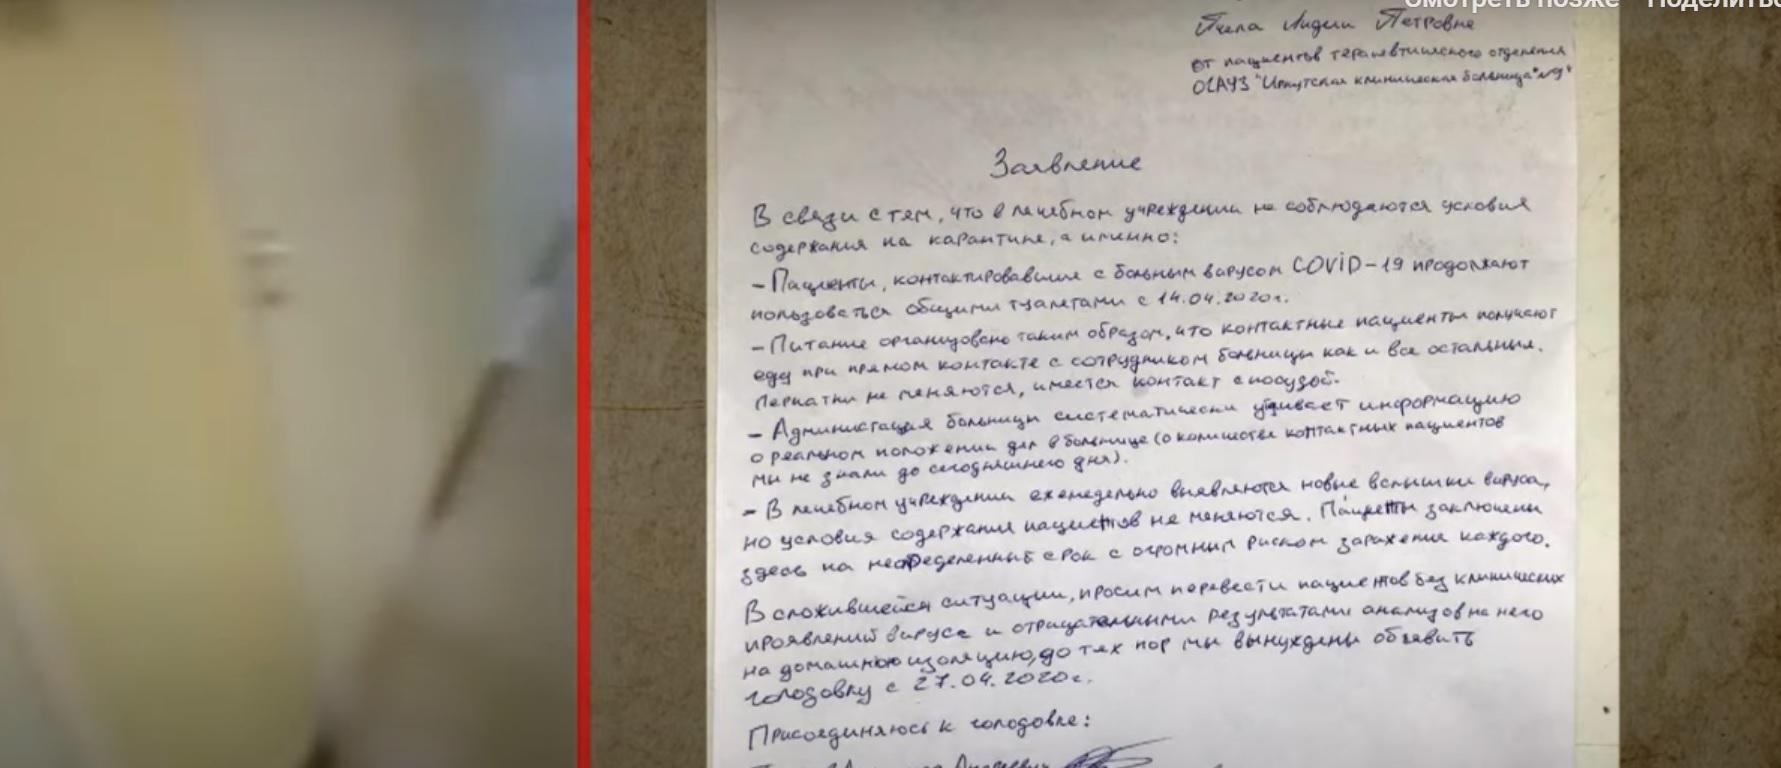 Смотреть позже Поделиться
Пчела Лидии Петровне
от пациентов терапевтического отделения
ОГАУЗ "Иркутская клиническая больница №9"
Заявление
В связи с тем, что в лечебном учреждении не соблюдаются условия
содержания на карантине, а именно:
- Пациенты, контактировавшие с больным вирусом COVID-19 продолжают
пользоваться общими туалетами с 14.04.2020г.
- Питание организовано таким образом, что контактные пациенты получают
еду при прямом контакте с сотрудником больницы как и все остальные.
Перчатки не меняются, имеется контакт с посудой.
- Администация больницы систематически утаивает информацию
о реальном положении дел в больнице (о количестве контактных пациентов
мы не знали до сегодняшнего дня).
- В лечебном учреждении еженедельно выявляются новые вспышки вируса,
но условия содержания пациентов не меняются. Пациенты заключены
здесь на неопределенный срок с огромным риском заражения каждого.
В сложившейся ситуации, просим перевести пациентов без клинических
проявлений вируса и отрицательными результатами анализов на него
на домашнюю изоляцию, до тех пор мы вынуждены объявить
голодовку с 27.04.2020г.
Присоединяюсь к голодовке: